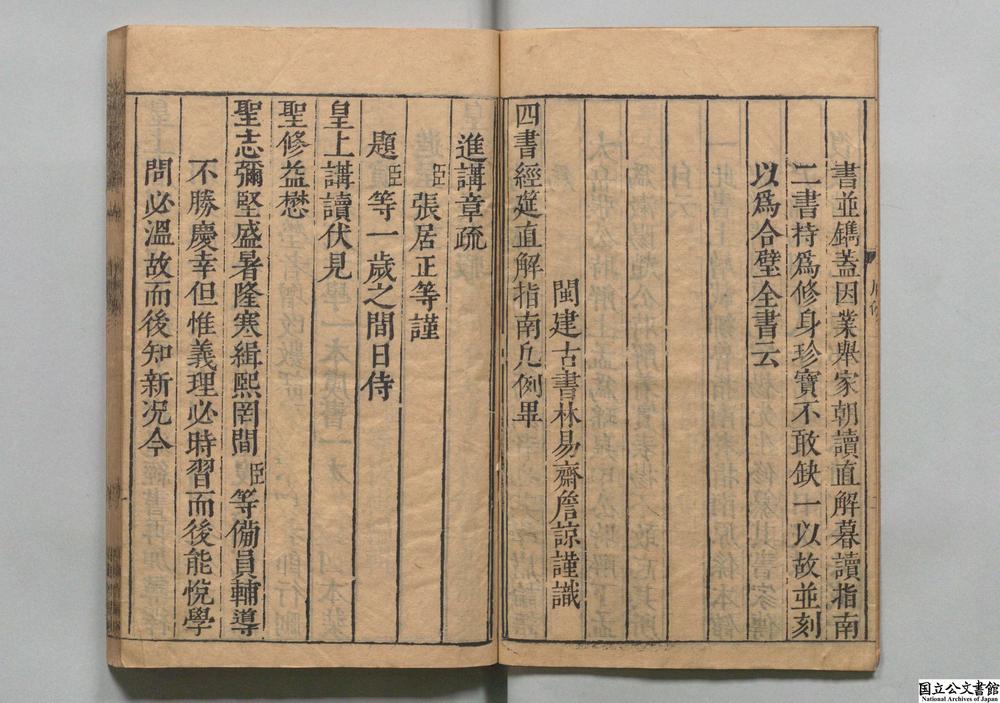 書並鐫蓋因業舉家朝讀直解暮讀指南
二書持爲修身珍寶不敢缺一以故並刻
以爲合璧全書云
閩建古書林易齋詹諒謹識
四書經筵直解指南凡例畢
進講章疏
臣張居正等謹
題臣等一歲之間日侍
皇上講讀伏見
聖修益懋
聖志彌堅盛暑隆寒緝熙罔間臣等備員輔導
不勝慶幸但惟義理必時習而後能悅學
問必溫故而後知新況今
国立公文書館
National Archives of Japan